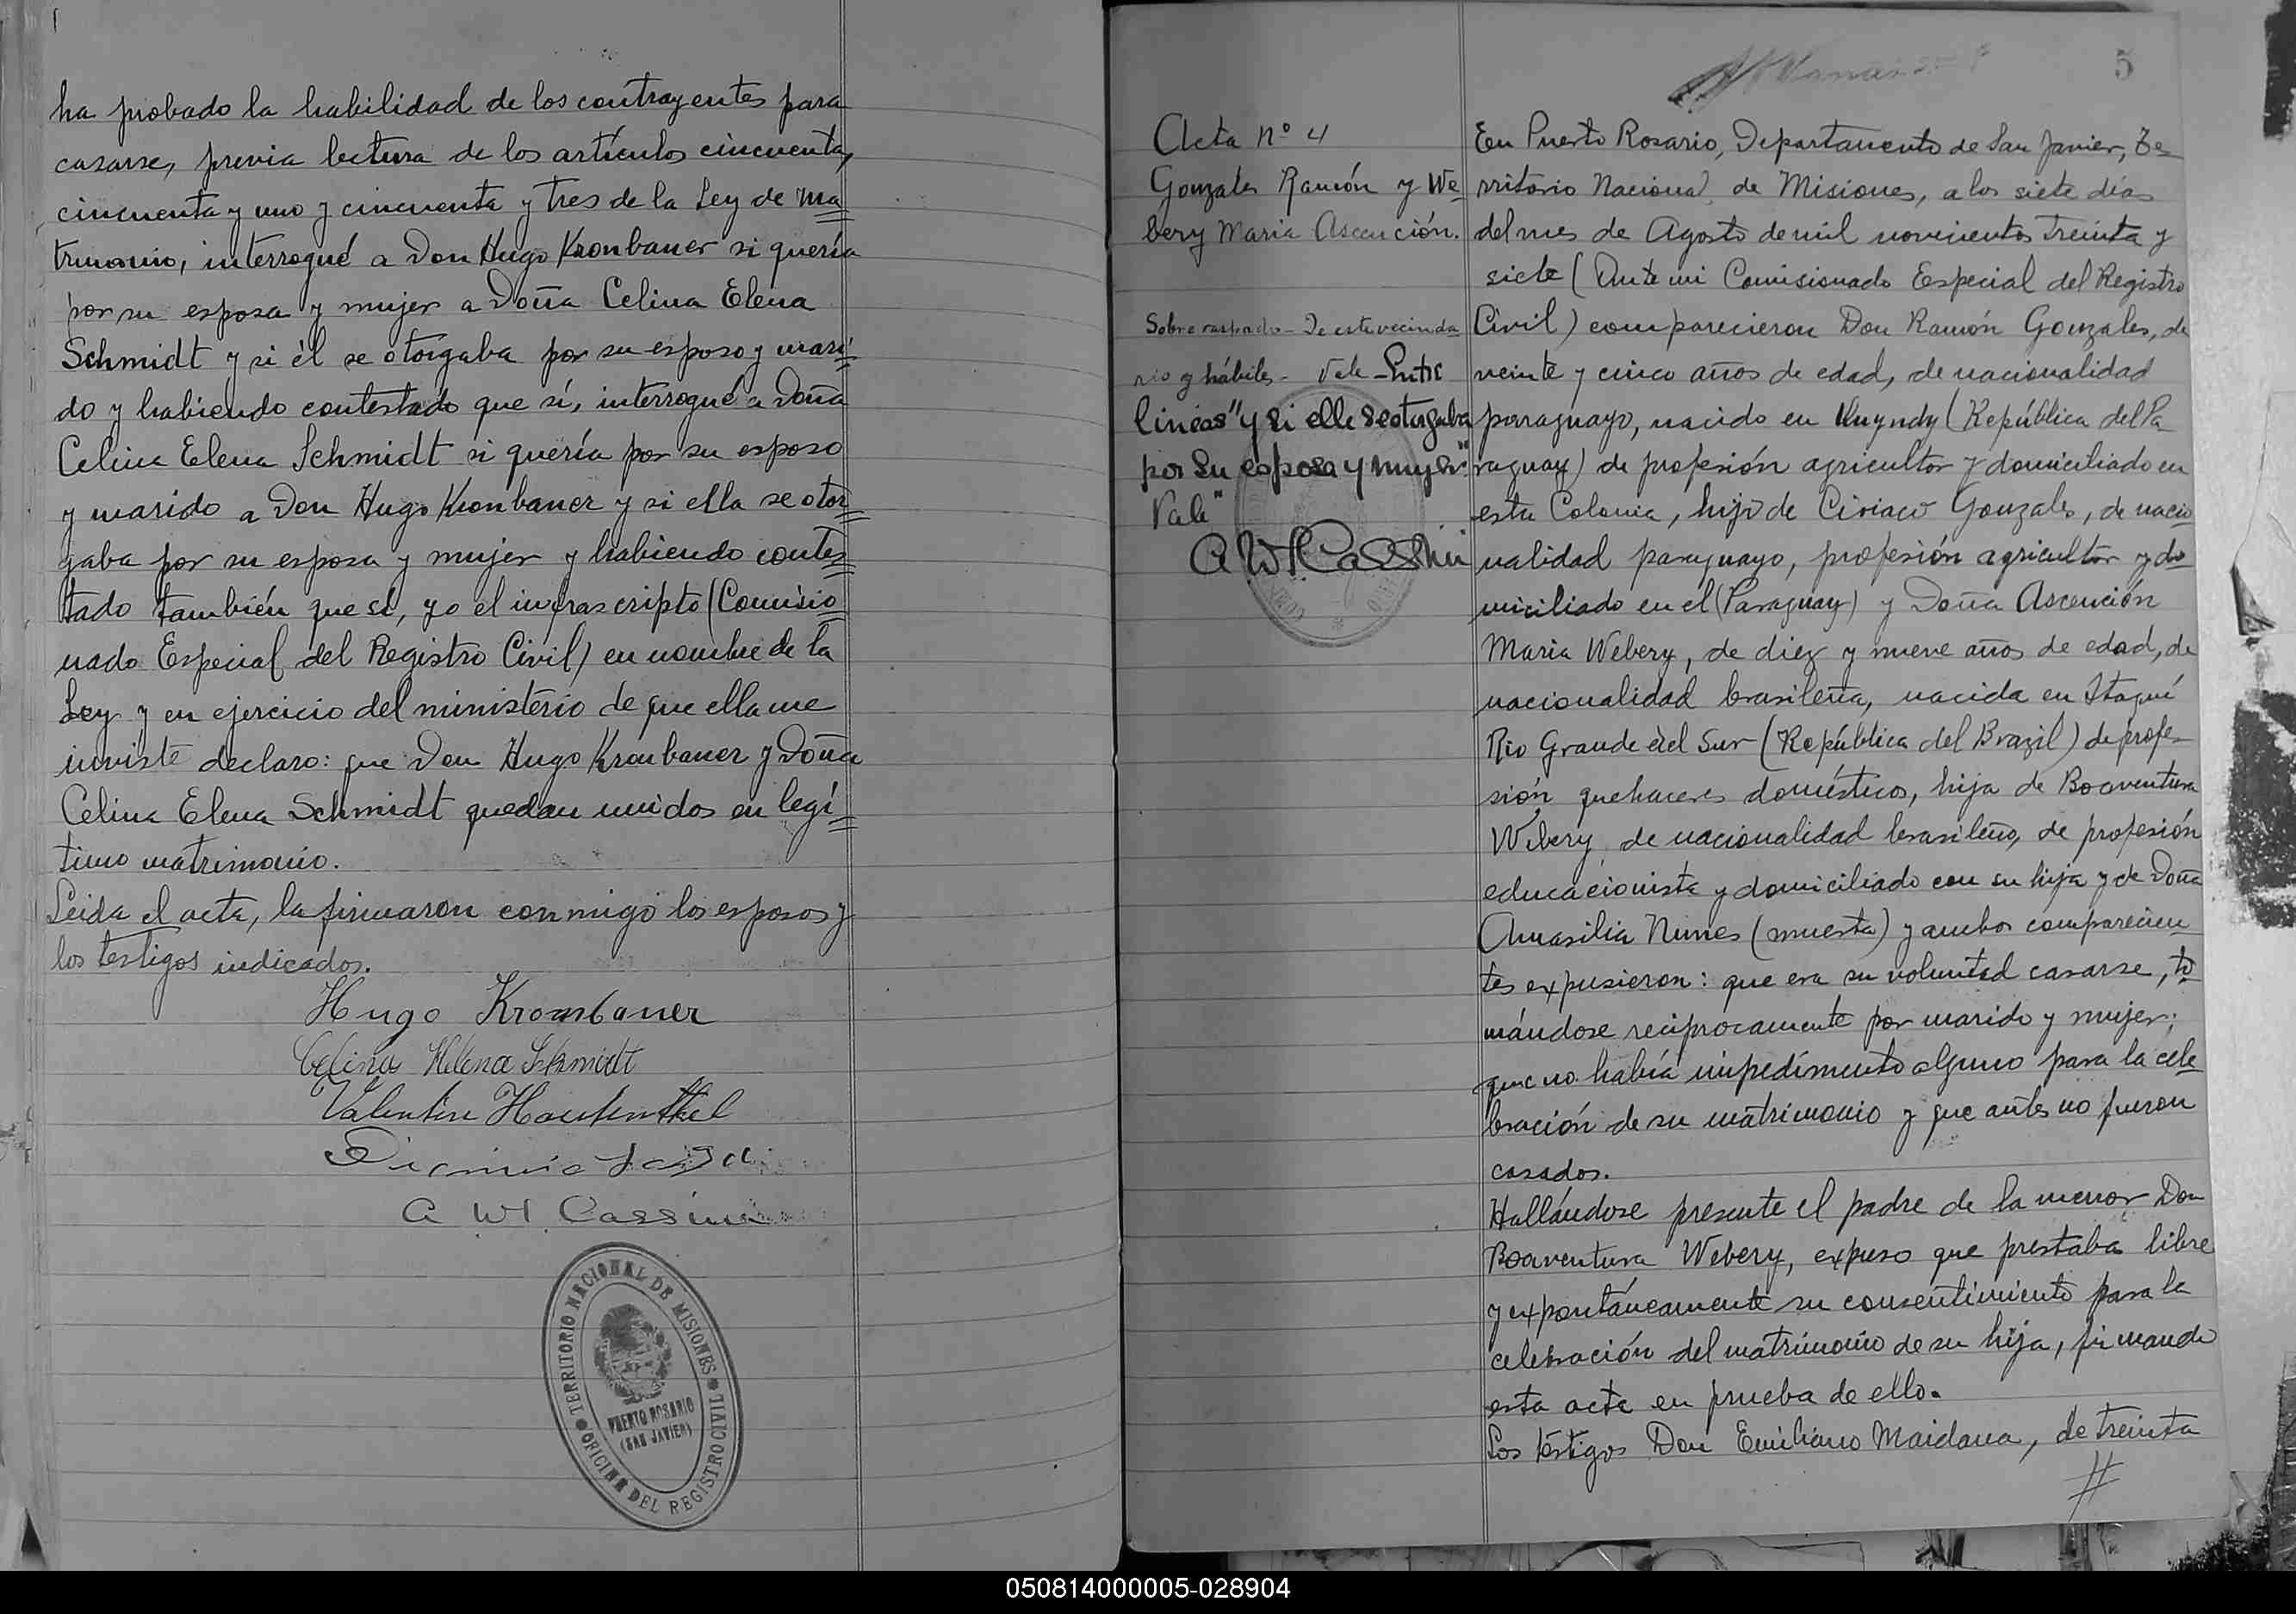 ha probado la habilidad de los contrayentes para
casarse, previa lectura de los artículos cincuenta,
cincuenta y uno y cincuenta y tres de la Ley de Ma=
trimonio, interrogué a Don Hugo Kronbauer si quería
por su esposa y mujer a Doña Celina Elena
Schmidt y si él se otorgaba por su esposo y mari=
do y habiendo contestado que sí, interrogué a Doña
Celina Elena Schmidt si quería por su esposo
y marido a Don Hugo Kronbauer y si ella se otor=
gaba por su esposa y mujer y habiendo contes=
tado también que sí, yo el infrascripto (Comisio=
nado Especial del Registro Civil) en nombre de la
Ley y en ejercicio del ministerio de que ella me
inviste declaro: que Don Hugo Kronbauer y Doña
Celina Elena Schmidt quedan unidos en legí=
timo matrimonio.
Leida el acta, la firmaron conmigo los esposos y
los testigos indicados.
Hugo Krombauer
Celina Helena Schmidt
Valentin
A W Cassini
TERRITORIO NACIONAL DE MISIONES
OFICINA DEL REGISTRO CIVIL
PUERTO ROSARIO
(SAN JAVIER)
5
Acta Nº 4
Gonzales Ramón y We=
bery Maria Ascención.
Sobre raspado - De este vecinda
rio y hábiles - Vale - Entre
lineas "y si ella se otorgaba
por su esposa y mujer"
Vale"
A W Cassini
En Puerto Rosario, Departamento de San Javier, Te=
rritorio Nacional de Misiones, a los siete días
del mes de Agosto de mil novecientos treinta y
siete (Ante mi Comisionado Especial del Registro
Civil) comparecieron Don Ramón Gonzales, de
veinte y cinco años de edad, de nacionalidad
paraguayo, nacido en (República del Pa
raguay) de profesión agricultor y domiciliado en
esta Colonia, hijo de Ciriaco Gonzales, de nacio
nalidad paraguayo, profesión agricultor y do
miciliado en el (Paraguay) y Doña Ascención
Maria Webery, de diez y nueve años de edad, de
nacionalidad brasileña, nacida en Itaquí
Rio Grande del Sur (República del Brazil) de profe=
sión quehaceres domésticos, hija de Boaventura
Webery, de nacionalidad brasileño, de profesión
educacionista y domiciliado con su hija y de Doña
Amasilia Nunes (muerta) y ambos comparecien
tes expusieron: que era su voluntad casarse, to=
mándose recíprocamente por marido y mujer;
que no había impedimento alguno para la cele=
bración de su matrimonio y que antes no fueron
casados.
Hallándose presente el padre de la menor Don
Boaventura Webery, expuso que prestaba libre
y expontáneamente su consentimiento para la
celebración del matrimonio de su hija, firmando
esta acta en prueba de ello.
Los testigos Don Emiliano Maidana, de treinta
050814000005-028904